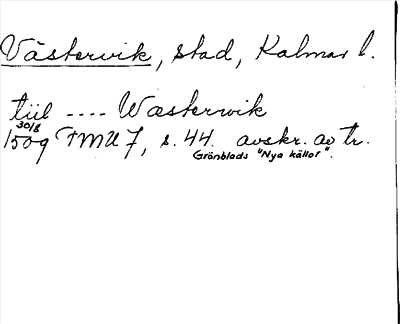 Västervik, stad, Kalmar l.
tiil ---- Wastervik
30/8
1509 FMU 7, s. 44. avskr. av tr.
Grönblads "Nya källor".